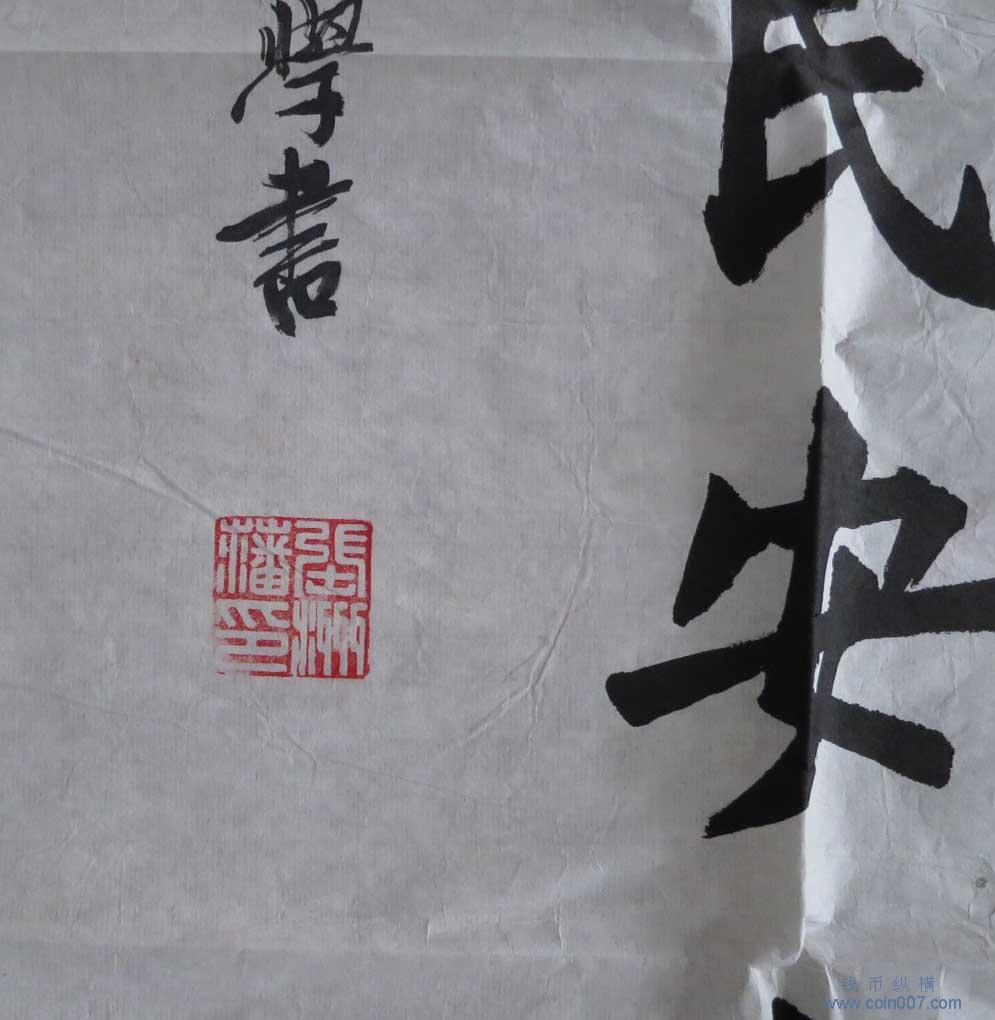 民安
學書
張洲
藩印
钱币纵横
www.coin007.com